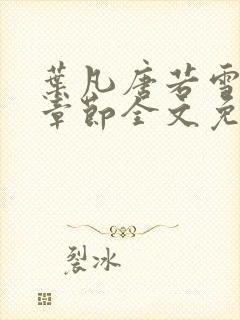 葉凡唐若雪
章節全文免
裂冰